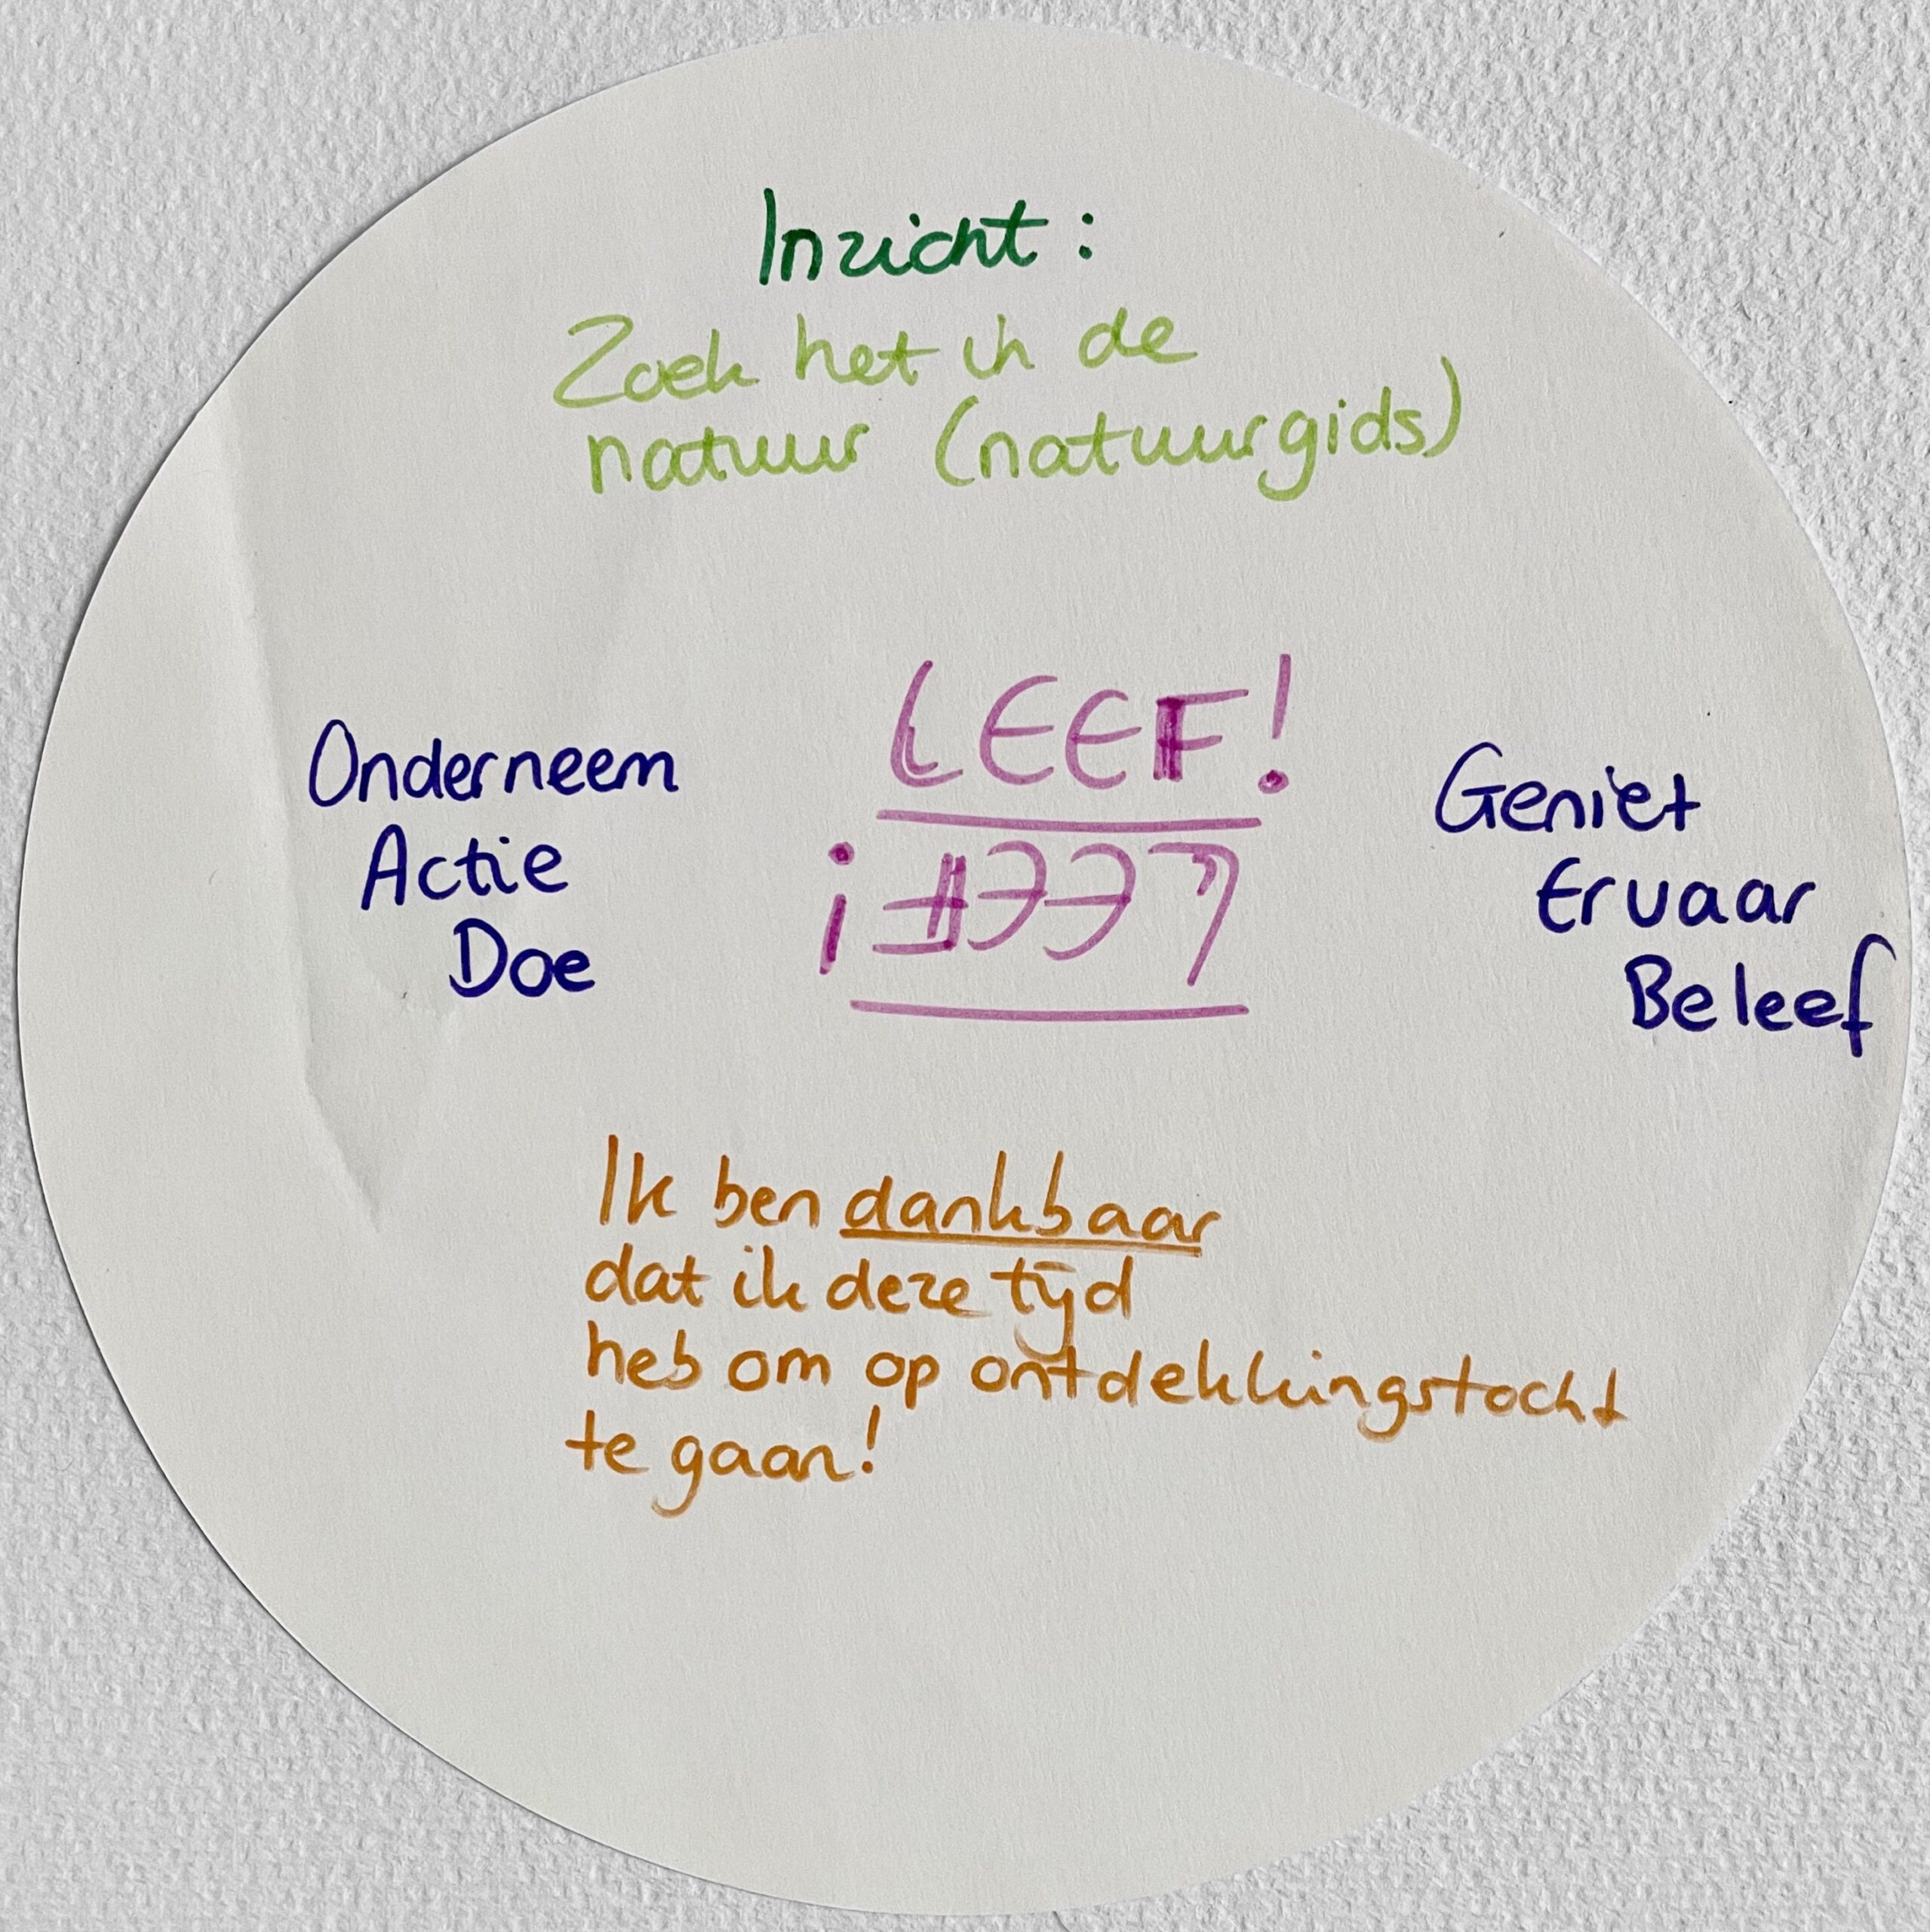 Inzicht:
Zoek het in de
natuur (natuurgids)
LEEF!
LEEF!
Onderneem
Actie
Doe
Geniet
Ervaar
Beleef
Ik ben dankbaar
dat ik deze tijd
heb om op ontdekkingstocht
te gaan!